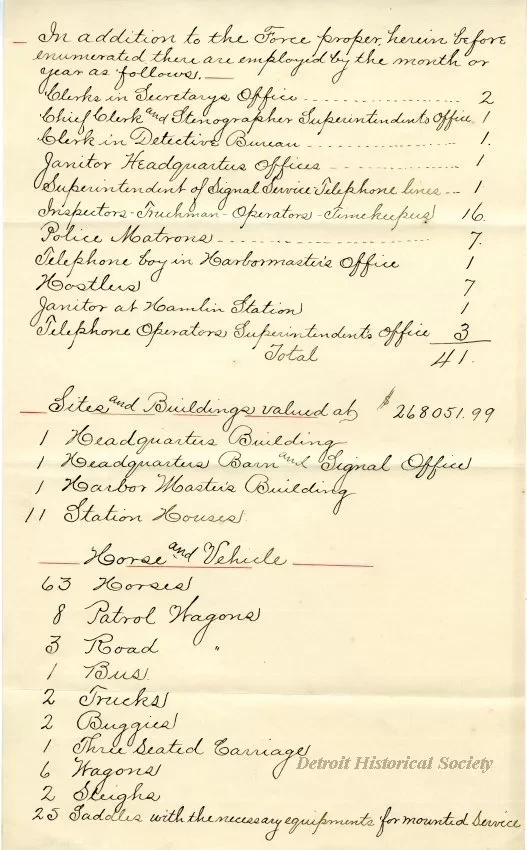 In addition to the Force proper, herein before
enumerated there are employed by the month or
year as follows.
Clerks in Secretarys Office 2
Chief Clerk and Stenographer Superintendents Office. 1
Clerk in Detective Bureau 1.
Janitor Headquarters Offices 1
Superintendent of Signal Service Telephone lines 1
Inspectors-Truckman-Operators-Timekeepers 16.
Police Matrons 7.
Telephone boy in Harbormaster's Office 1
Hostlers 7
Janitor at Hamlin Station 1
Telephone Operators Superintendent's Office 3
Total 41.
Sites and Buildings valued at $268051.99
1 Headquarters Building
1 Headquarters Barn and Signal Office
1 Harbor Master's Building
11 Station Houses
Horse and Vehicle
63 Horses
8 Patrol Wagons
3 Road "
1 Bus
2 Trucks
2 Buggies
1 Three Seated Carriage
Detroit Historical Society
6 Wagons
2 Sleighs
25 Saddles with the necessary equipments for mounted Service